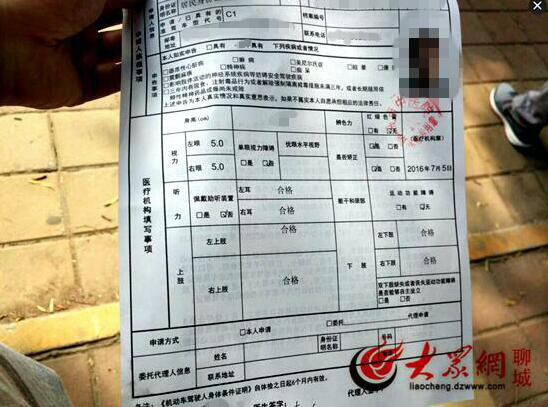 身份证明名称 居民身份
申请/已具有的准驾车型代号 C1
档案编号
联系电话
申请人填报事项
本人如实申告 □具有 下列疾病或者情况
□器质性心脏病 □癫痫 □美尼尔氏症 □眩晕
□震颤麻痹 □精神病 □痴呆
□影响肢体活动的神经系统疾病等妨碍安全驾驶疾病
上述申告为本人真实情况和真实意思表示，如果不属实本人自愿承担相应的法律责任。
身高(cm) 辨色力 红绿色盲
□有
视力
左眼 5.0 单眼视力障碍 优眼水平视野 是否矫正 (医疗机构章)
右眼 5.0 □是 □否 2016年7月5日
医疗机构填写事项
听力 佩戴助听装置 □是 □否
左耳 合格
右耳 合格
躯干和颈部 运动功能障碍
□有 □无
上肢 左上肢 合格
右上肢 合格
下肢 左下肢 合格
右下肢 合格
双下肢缺失或者丧失运动功能障碍是否能够自主坐立
□是 □否
申请方式 □本人申请 □委托 代理申请
委托代理人信息 姓名 身份证明名称 号码
联系地址
《机动车驾驶人身体条件证明》自体检之日起6个月内有效。
医生签字：
大众網 聊城
liaocheng.dzwww.com